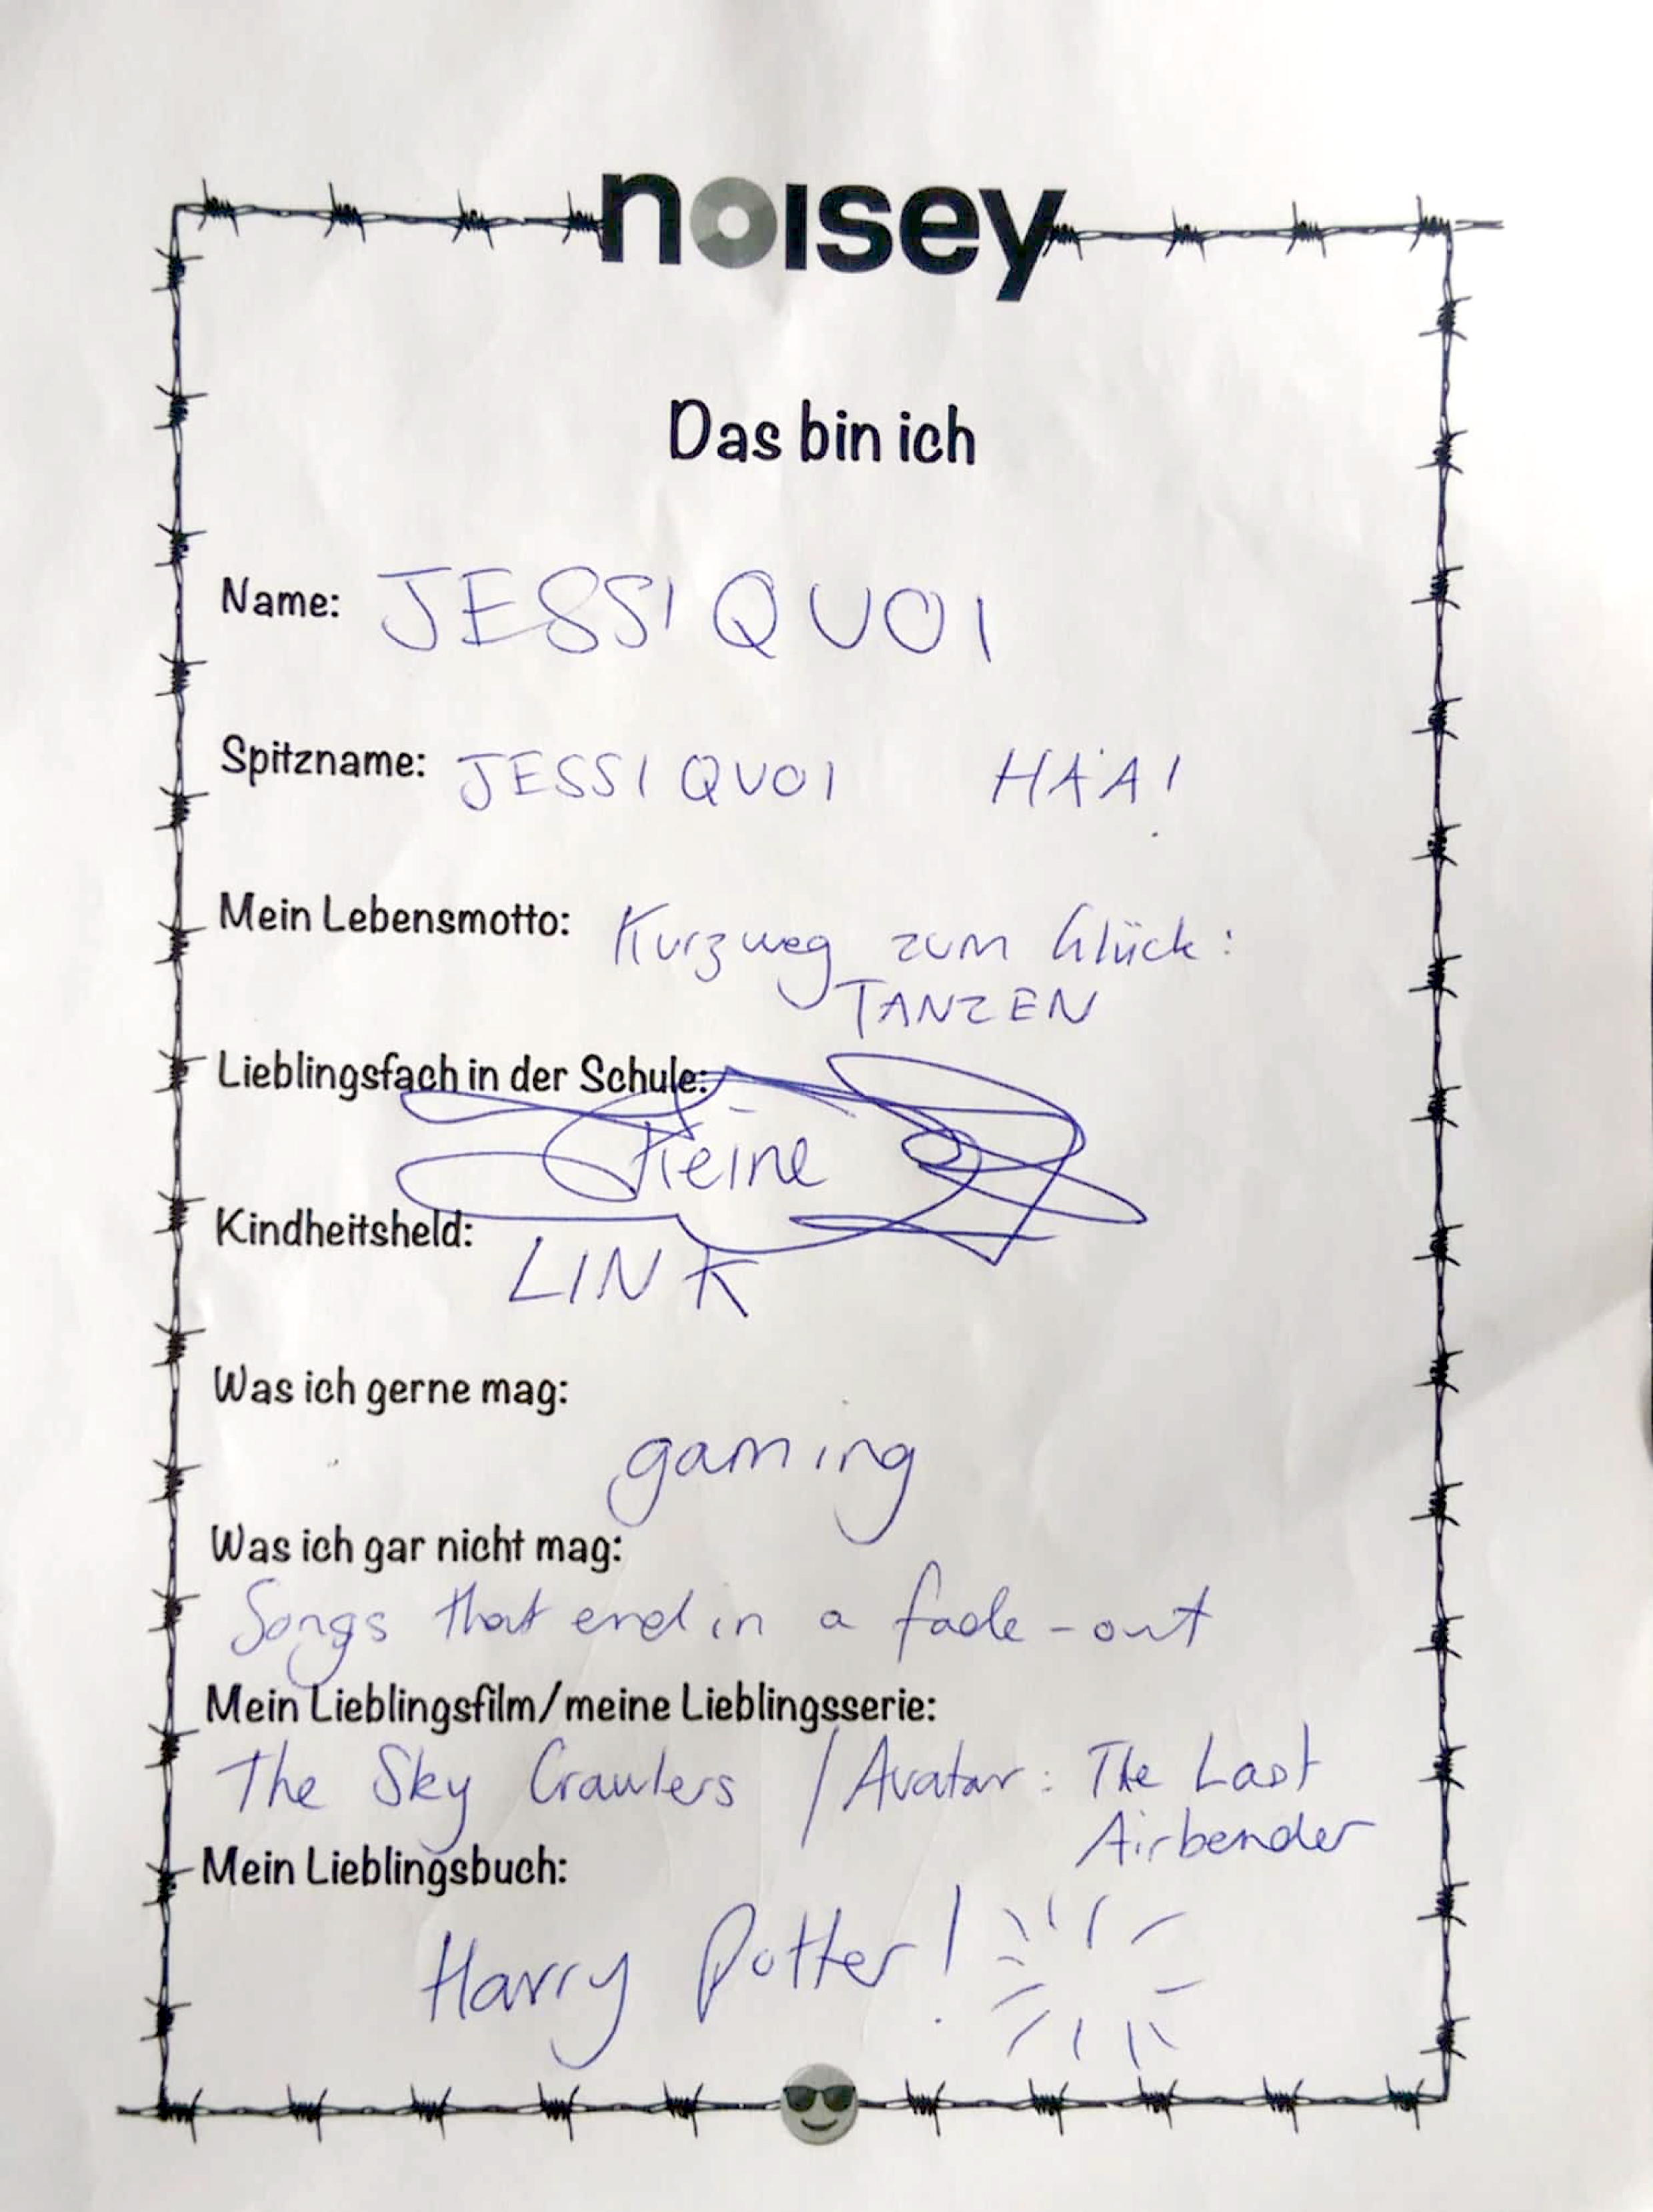 noisey
Das bin ich
Name: JESSIQUOI
Spitzname: JESSIQUOI HÄÄ!
Mein Lebensmotto: Kurzweg zum Glück:
TANZEN
Lieblingsfach in der Schule:
Keine
Kindheitsheld:
LINK
Was ich gerne mag:
gaming
Was ich gar nicht mag:
Songs that end in a fade-out
Mein Lieblingsfilm/meine Lieblingsserie:
The Sky Crawlers / Avatar: The Last
Airbender
Mein Lieblingsbuch:
Harry Potter!